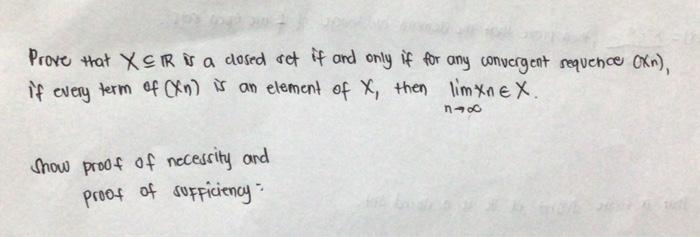 Prove that X ⊆ ℝ is a closed set if and only if for any convergent sequence (Xn),
if every term of (Xn) is an element of X, then lim Xn ∈ X.
n→∞
Show proof of necessity and
proof of sufficiency: